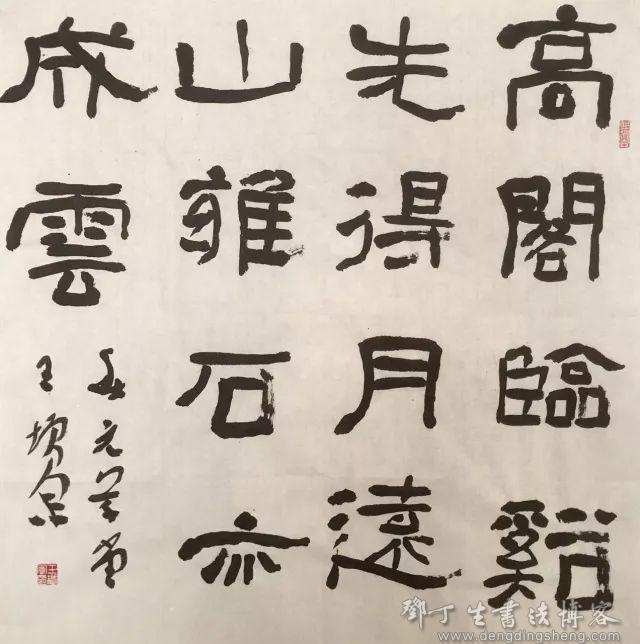 高閣臨谿
先得月遠
山雖石亦
成雲
鄧丁生書法博客
www.dengdingsheng.com